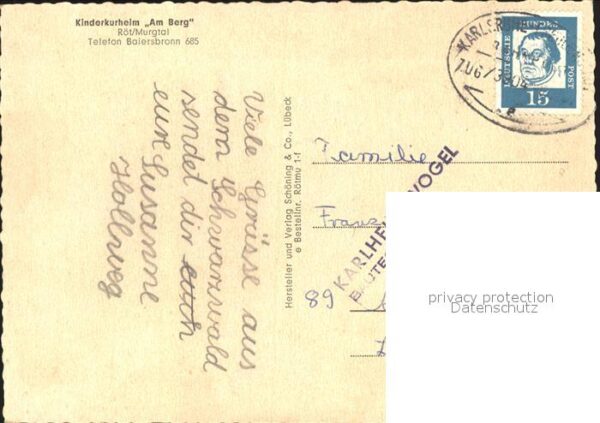 Kinderkurheim „Am Berg"
Röt/Murgtal
Telefon Baiersbronn 685
Viele Grüsse aus
dem Schwarzwald
sendet dir euch
eure Susanne
Hollweg
Hersteller und Verlag Schöning & Co., Lübeck
e Bestellnr. Rötmu 1-f
KARLSR
ZUG
DEUTSCHE BUNDES POST
15
Familie
Franz
89
KARLHE VOGEL
BAUTE
privacy protection
Datenschutz